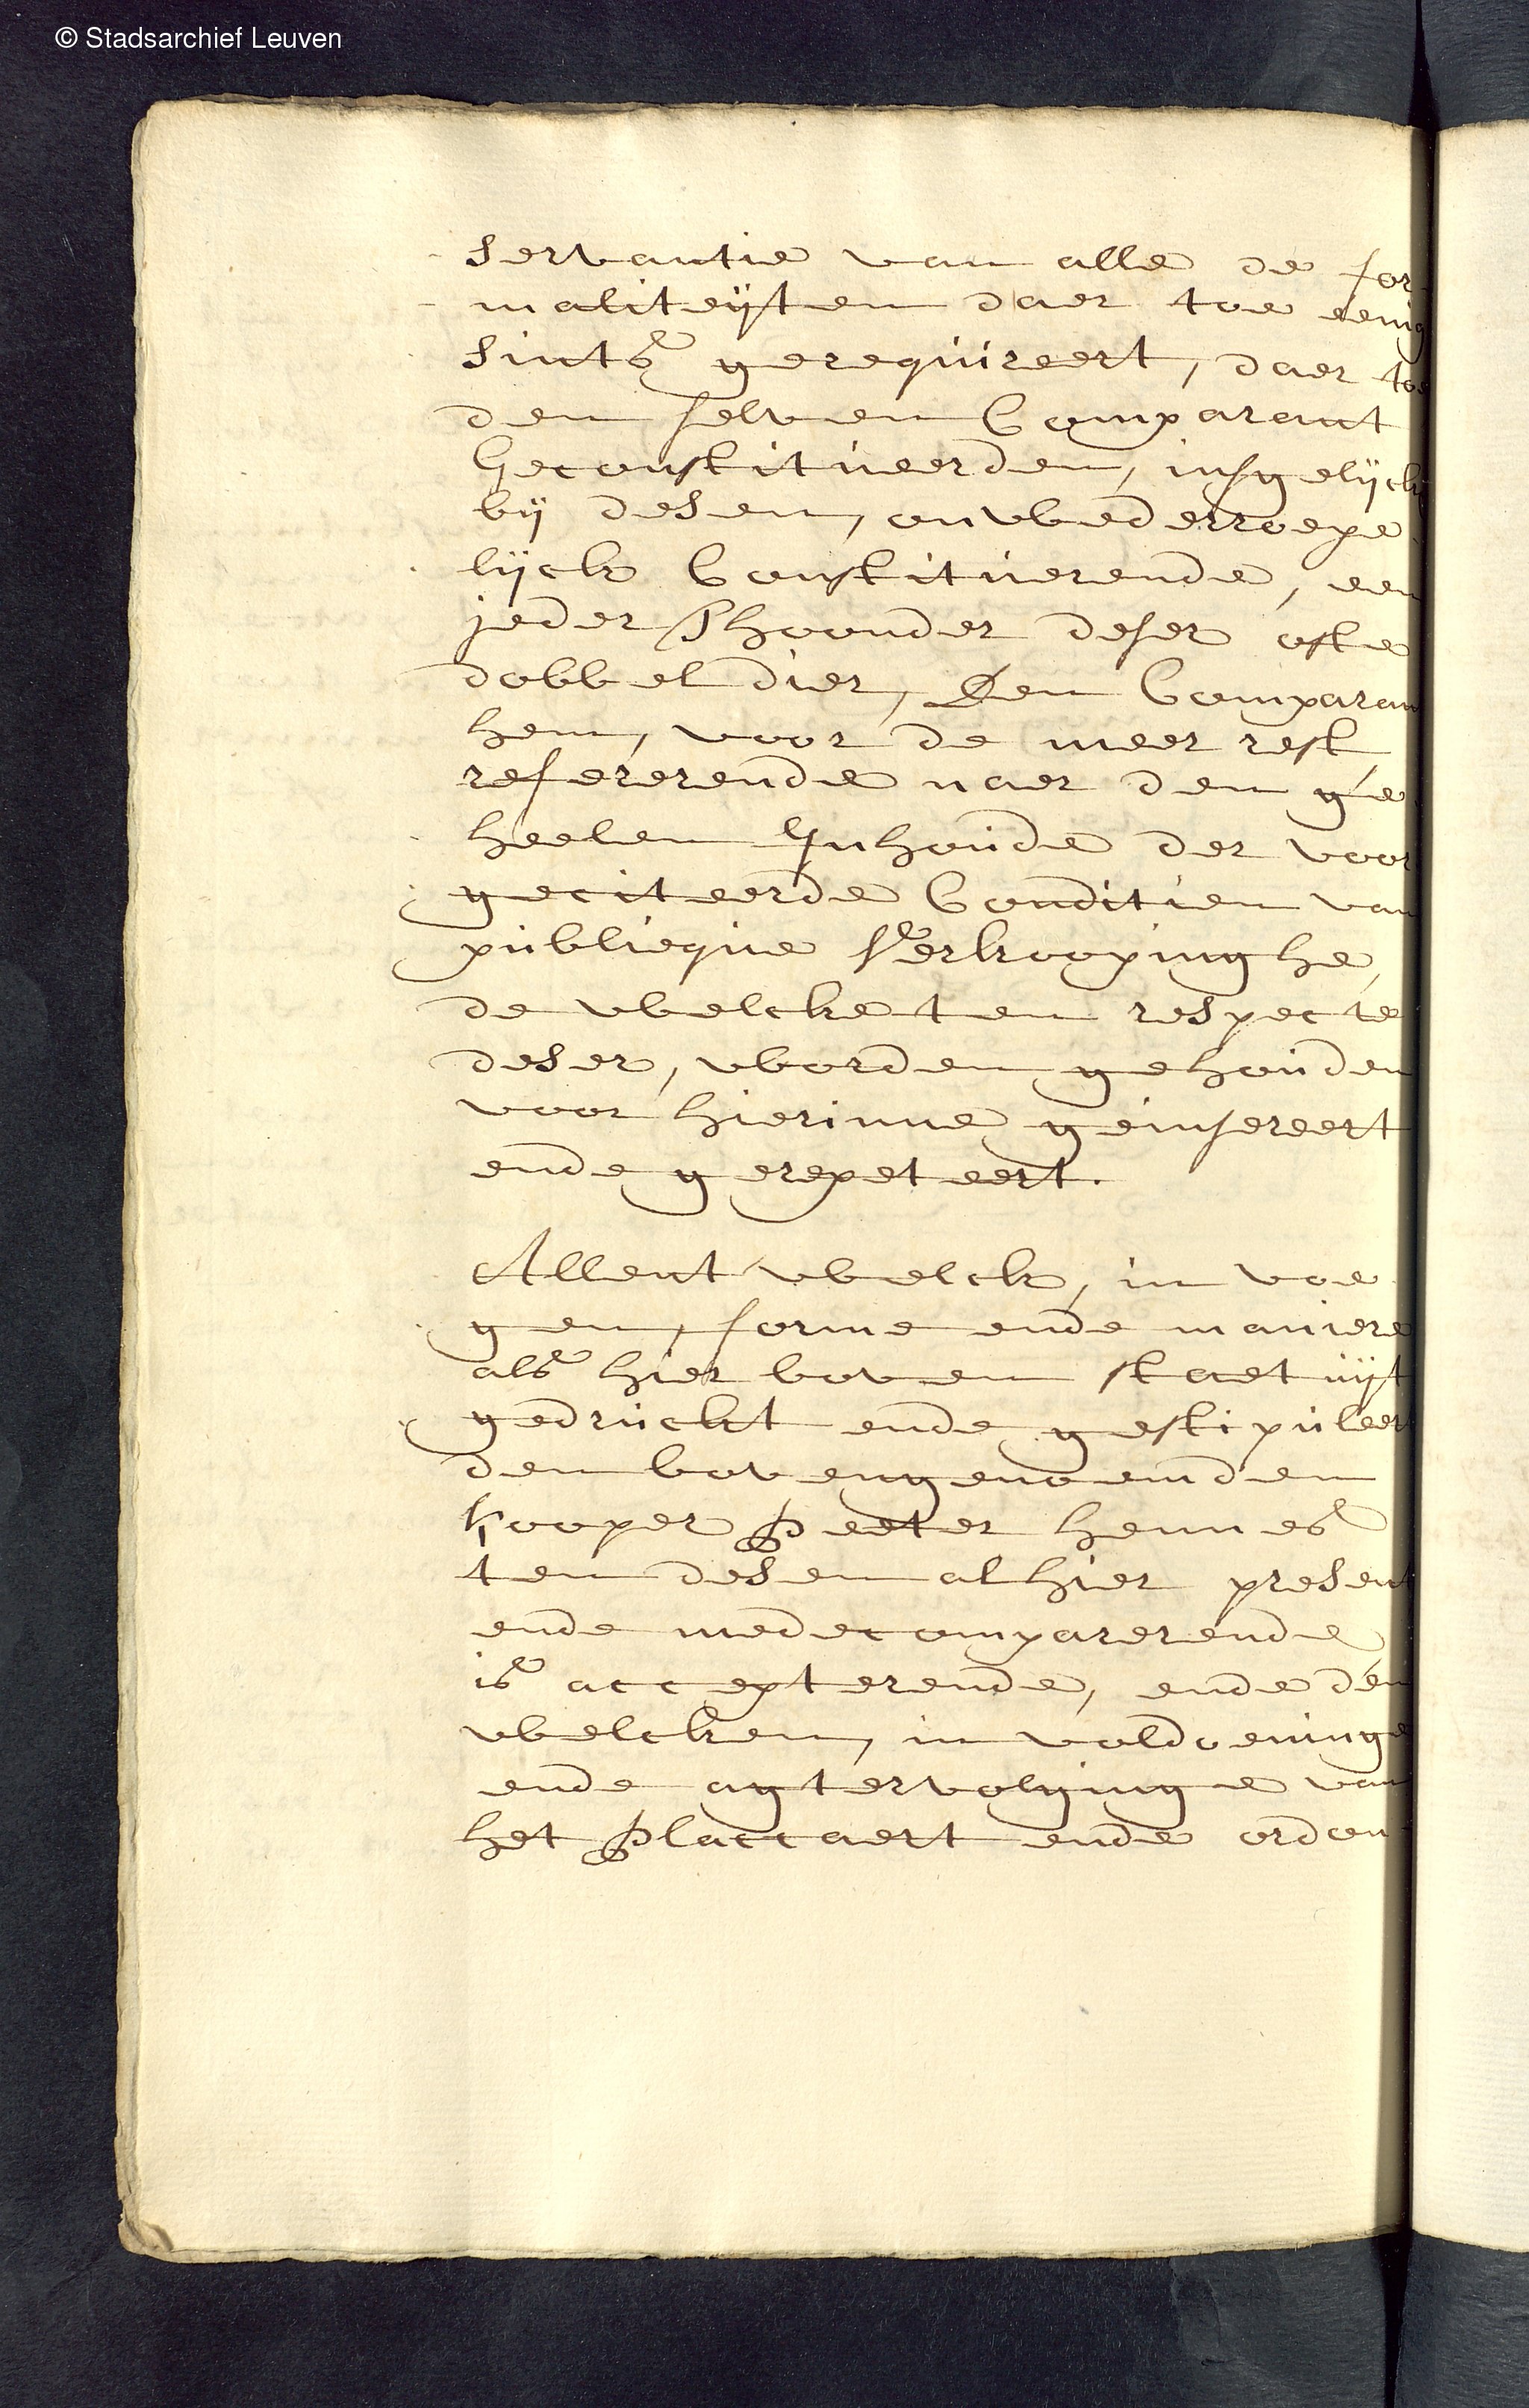 © Stadsarchief Leuven
servantie van alle de for-
maliteÿten daer toe eenig
sints gerequireert, daer toe
den selven Comparant
Geconstitueerden, insgelÿck
bÿ desen, onwederroepe-
lÿck Constituerende, een
jeder Thoonder deser ofte
dobbel dier, Den Comparant
hem, voor de meer rest,
refererende naer den ge-
heelen Inhoude der voor
geciteerde Conditien van
publieque Verkoopinghe,
de welcke ten respecte
deser, worden gehouden
voor hierinne geinsereert
ende gerepeteert.
Allent welck, in voe-
gen, forme ende maniere
als hier boven staet uÿt
gedruckt ende gestipuleert
den bovengenoemden
kooper Peeter Hennes
ten desen alhier present
ende medecomparerende
is accepterende, ende den
welcken, in voldoeninge
ende agtervolginge van
het Placcaert ende ordon-